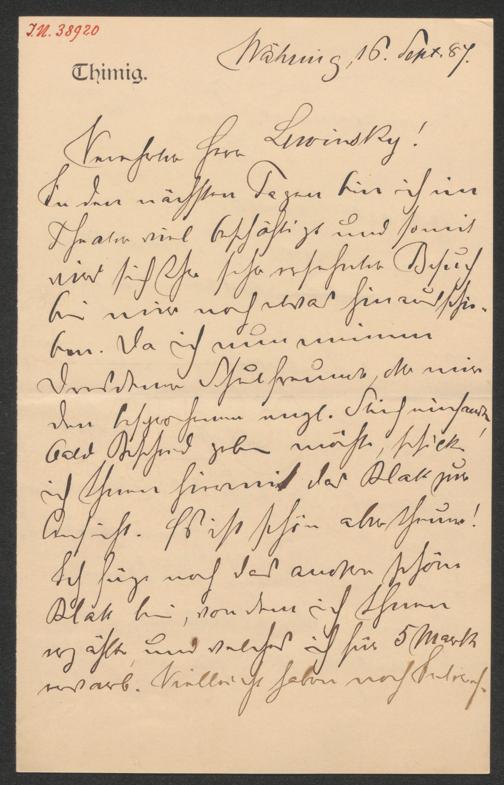 I.N. 38920
Thimig.
Währing, 16. Sept. 87.
Verehrter Herr Lewinsky!
In den nächsten Tagen bin ich im
Theater viel beschäftigt und somit
wird sich Ihr sehr ersehnter Besuch
bei mir noch etwas hinausschie-
ben. Da ich nun meinem
Dresdener Schulfreunde, der mir
den besprochenen engl. Stich einsandte,
bald Bescheid geben möchte, schicke
ich Ihnen hiermit das Blatt zur
Ansicht. Es ist schön aber theuer!
Ich füge noch das andere schöne
Blatt bei, von dem ich Ihnen
erzählte und welches ich für 5 Mark
erwarb. Vielleicht haben noch